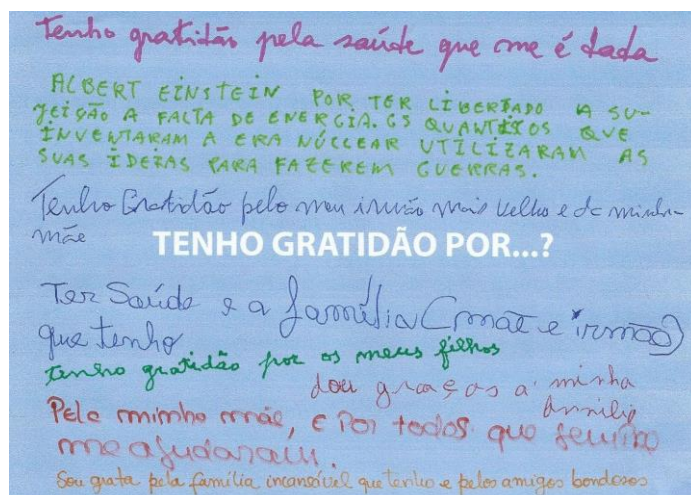 Tenho gratidão pela saúde que me é dada
ALBERT EINSTEIN POR TER LIBERTADO A SU-
JEIÇÃO A FALTA DE ENERGIA. OS QUE
INVENTARAM A ERA NÚCLEAR UTILIZARAM AS
SUAS IDEIAS PARA FAZEREM GUERRAS.
Tenho Gratidão pelo meu irmão mais velho e da minha
mãe
TENHO GRATIDÃO POR...?
Ter Saúde e a família (mãe e irmão)
que tenho
tenho gratidão por os meus filhos
dou graças a minha
Pela minha mãe, e Por todos que
me ajudaram.
Sou grata pela família incansável que tenho e pelos amigos bondosos